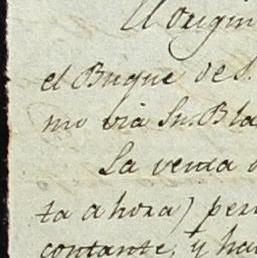 el Buque de S.
mo via Sn. Bla
La venta
ta ahora) per
contante, y ha